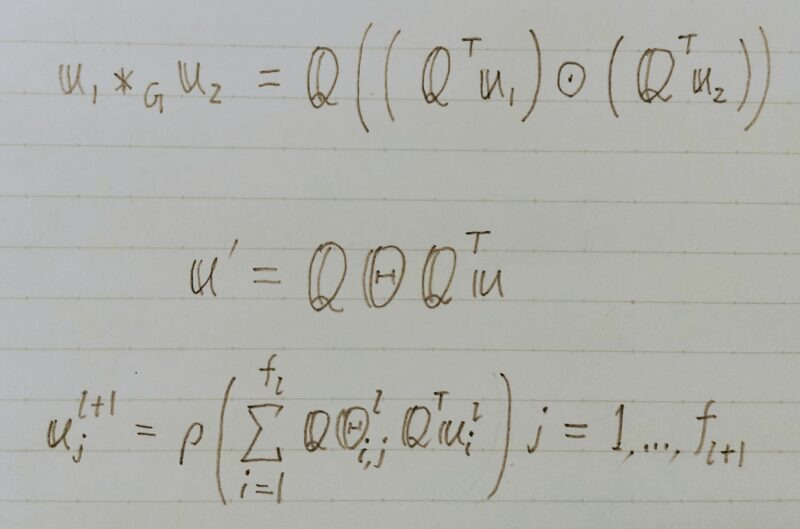 𝕦₁ *_G 𝕦₂ = ℚ((ℚᵀ𝕦₁) ⊙ (ℚᵀ𝕦₂))
𝕦′ = ℚ Θ ℚᵀ 𝕦
𝕦_j^{l+1} = ρ(∑_{i=1}^{f_l} ℚΘ_{i,j}^l ℚᵀ𝕦_i^l) j = 1,...,f_{l+1}